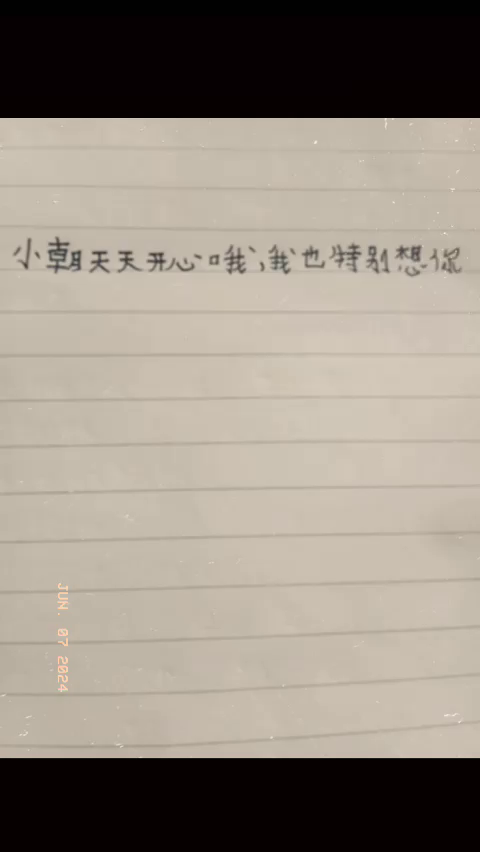 小朝天天开心哦,我也特别想你
JUN. 07 2024